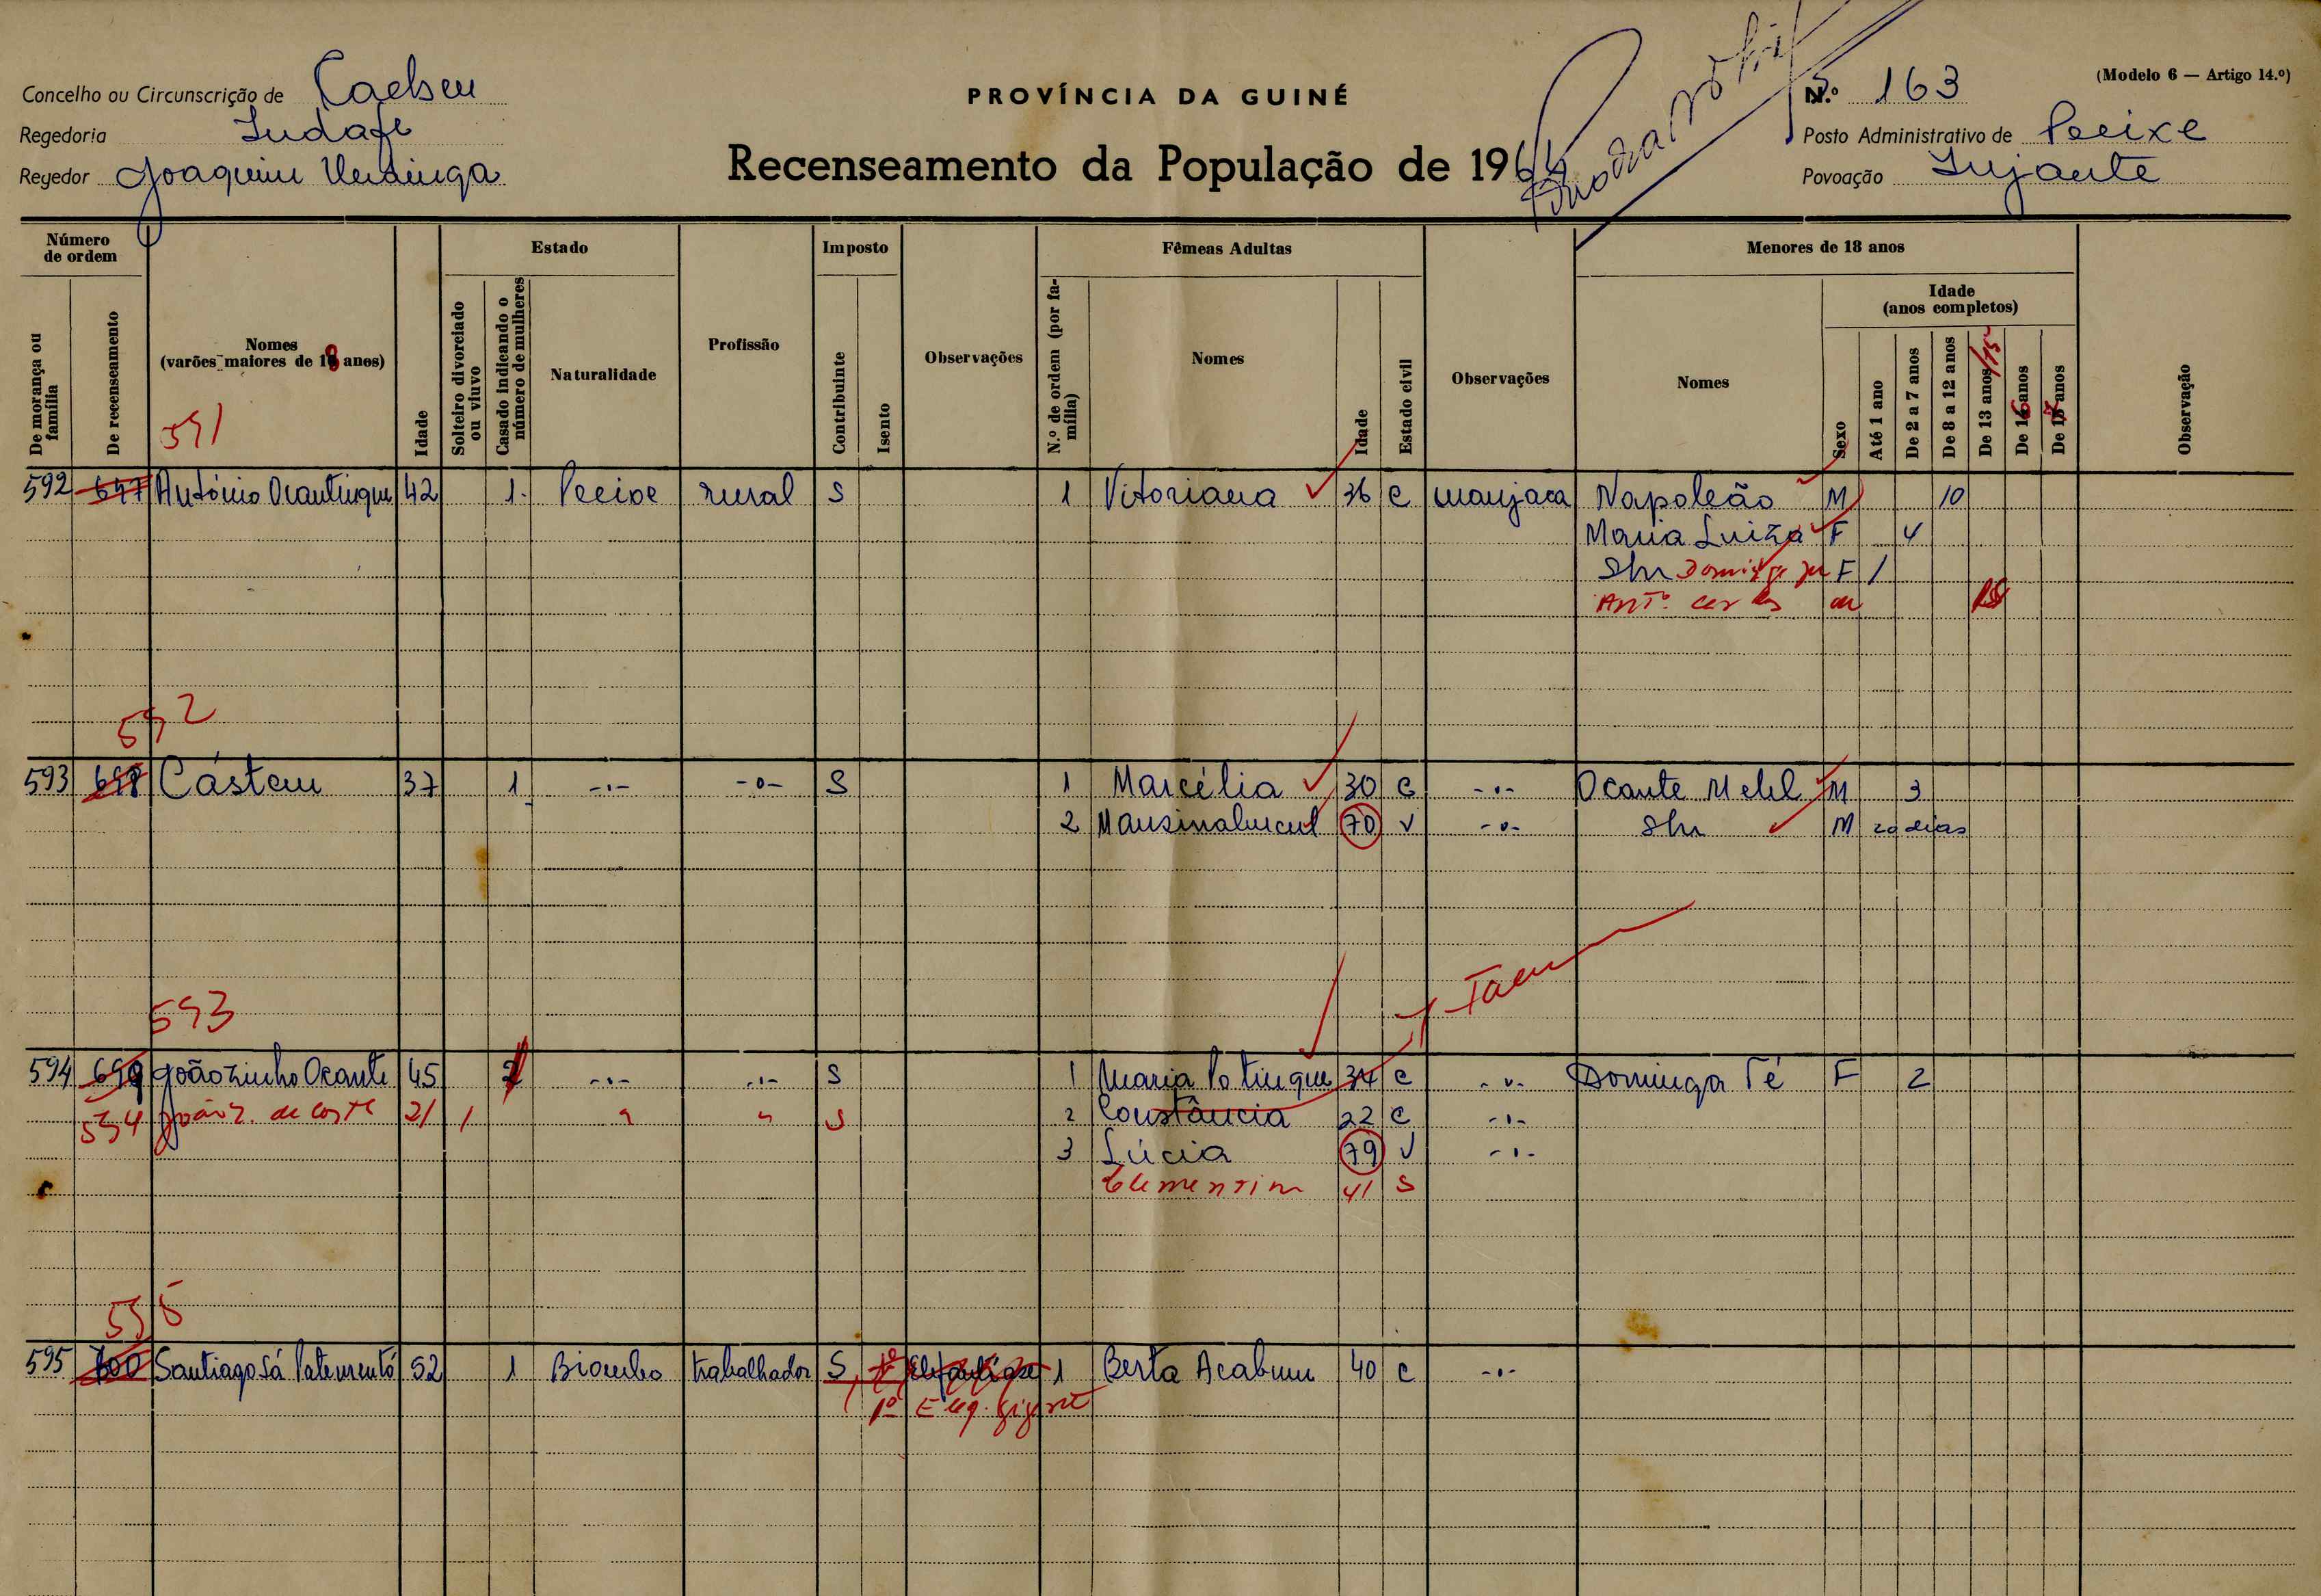 (Modelo 6 — Artigo 14.º)
Concelho ou Circunscrição de
PROVÍNCIA DA GUINÉ
N.º 163
Regedoria
Posto Administrativo de Pecixe
Regedor Joaquim
Recenseamento da População de 196
Povoação
Número de ordem
De morança ou família
De recenseamento
Nomes
(varões maiores de 18 anos)
591
Idade
Estado
Solteiro divorciado ou viuvo
Casado indicando o número de mulheres
Naturalidade
Profissão
Imposto
Contribuinte
Isento
Observações
Fêmeas Adultas
N.º de ordem (por família)
Nomes
Idade
Estado civil
Observações
Menores de 18 anos
Nomes
Idade
(anos completos)
Sexo
Até 1 ano
De 2 a 7 anos
De 8 a 12 anos
De 13 anos /15
De 16 anos
De 17 anos
Observação
592 697 António Ocantingue 42 1 Pecixe rural S 1 Vitoriana 36 C manjaca Napoleão M 10
Maria Luiza F 4
Shn F 1
Antº Carlos
592
593 698 Cástem 37 1 -·- -o- S 1 Marcélia 30 C -·- Ocante M 3
2 70 V -o- Shn M 20 dias
593
594 699 Joãozinho Ocante 45 -·- -·- S 1 Maria 34 C -·- Dominga Té F 2
594 João da Costa 21 1 " " S 2 Constância 22 C -·-
3 Lúcia 79 V -·-
41 S
595
595 700 Santiago Sá 52 1 Biombo trabalhador S 1 Berta 40 C -·-
1º